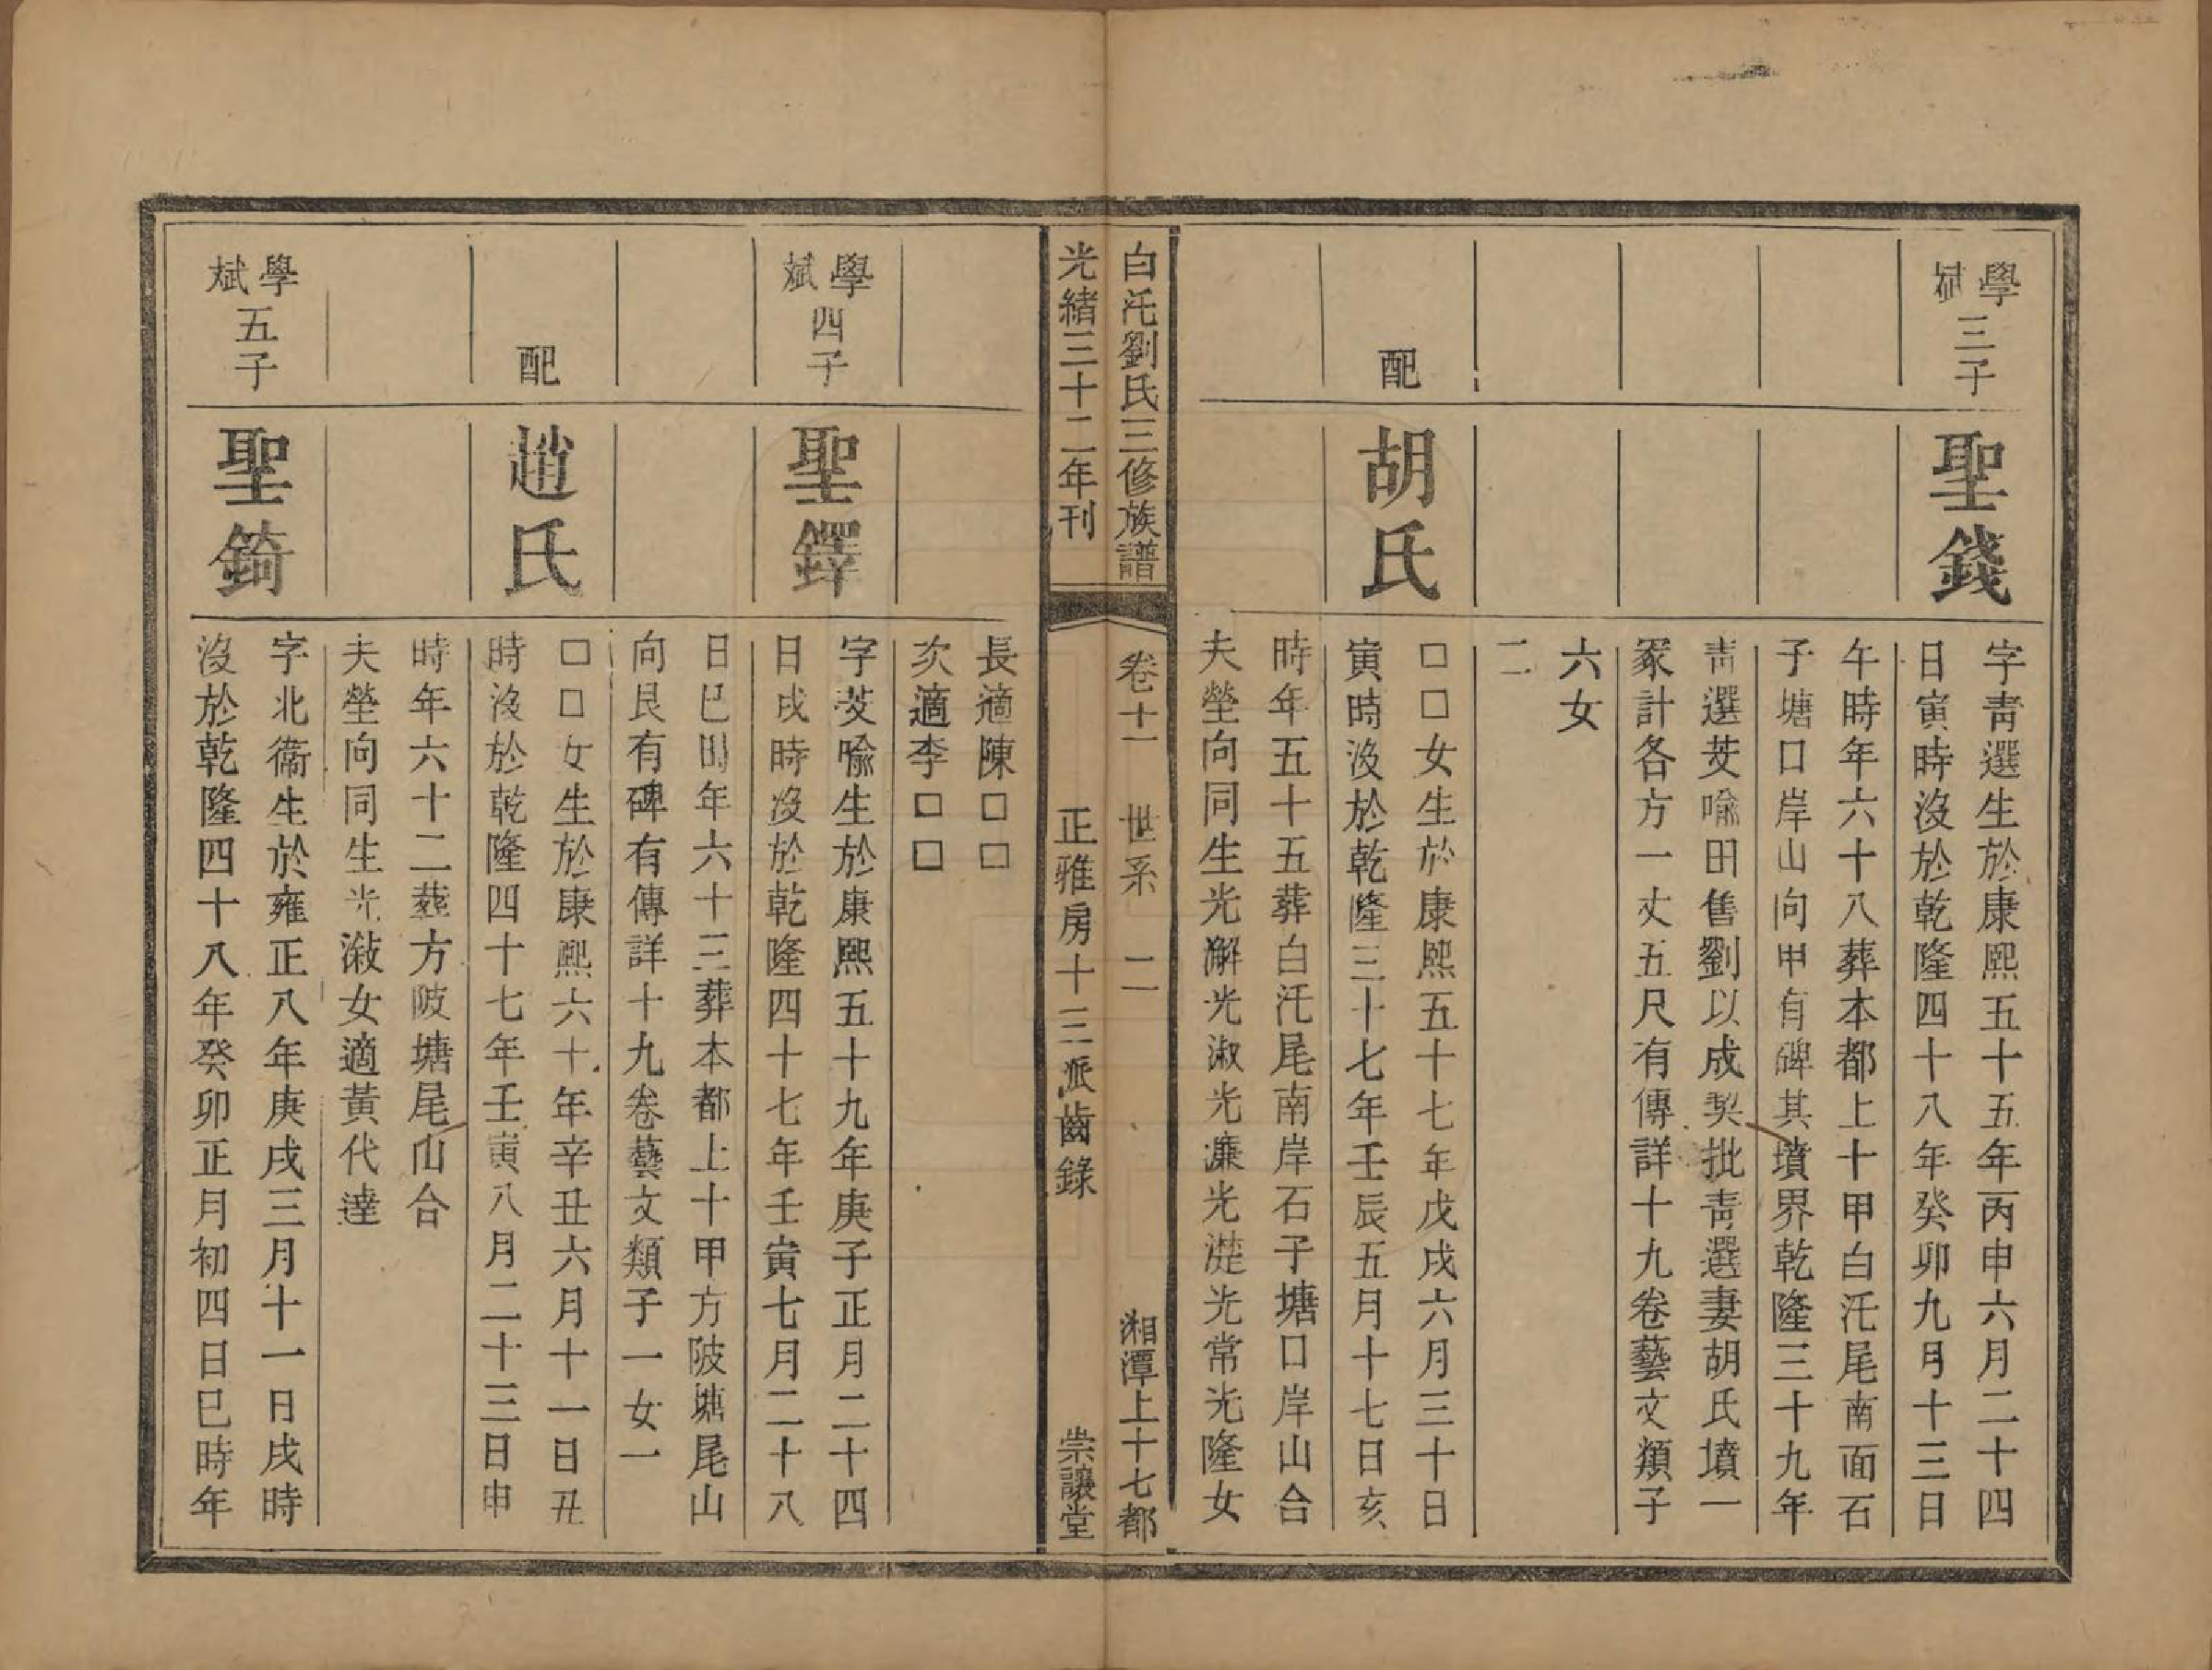 學斌三子
聖錢
字靑選生於康熙五十五年丙申六月二十四
日寅時沒於乾隆四十八年癸卯九月十三日
午時年六十八葬本都上十甲白汑尾南面石
子塘口岸山向甲有碑其墳界乾隆三十九年
靑選芰喩田售劉以成契批靑選妻胡氏墳一
冢計各方一丈五尺有傳詳十九卷藝文類子
六女
二
配
胡氏
□□女生於康熙五十七年戊戌六月三十日
寅時沒於乾隆三十七年壬辰五月十七日亥
時年五十五葬白汑尾南岸石子塘口岸山合
夫塋向同生光澥光淑光濂光漟光常光隆女
白汑劉氏三修族譜
卷十一 世系 二
湘潭上十七都
光緒三十二年刊
正雅房十三派齒錄
崇讓堂
長適陳□□
次適李□□
學斌四子
聖鐸
字芰喩生於康熙五十九年庚子正月二十四
日戌時沒於乾隆四十七年壬寅七月二十八
日巳時年六十三葬本都上十甲方陂塘尾山
向艮有碑有傳詳十九卷藝文類子一女一
配
趙氏
□□女生於康熙六十年辛丑六月十一日丑
時沒於乾隆四十七年壬寅八月二十三日申
時年六十二葬方陂塘尾山合
夫塋向同生光漵女適黃代達
學斌五子
聖錡
字北衞生於雍正八年庚戌三月十一日戌時
沒於乾隆四十八年癸卯正月初四日巳時年